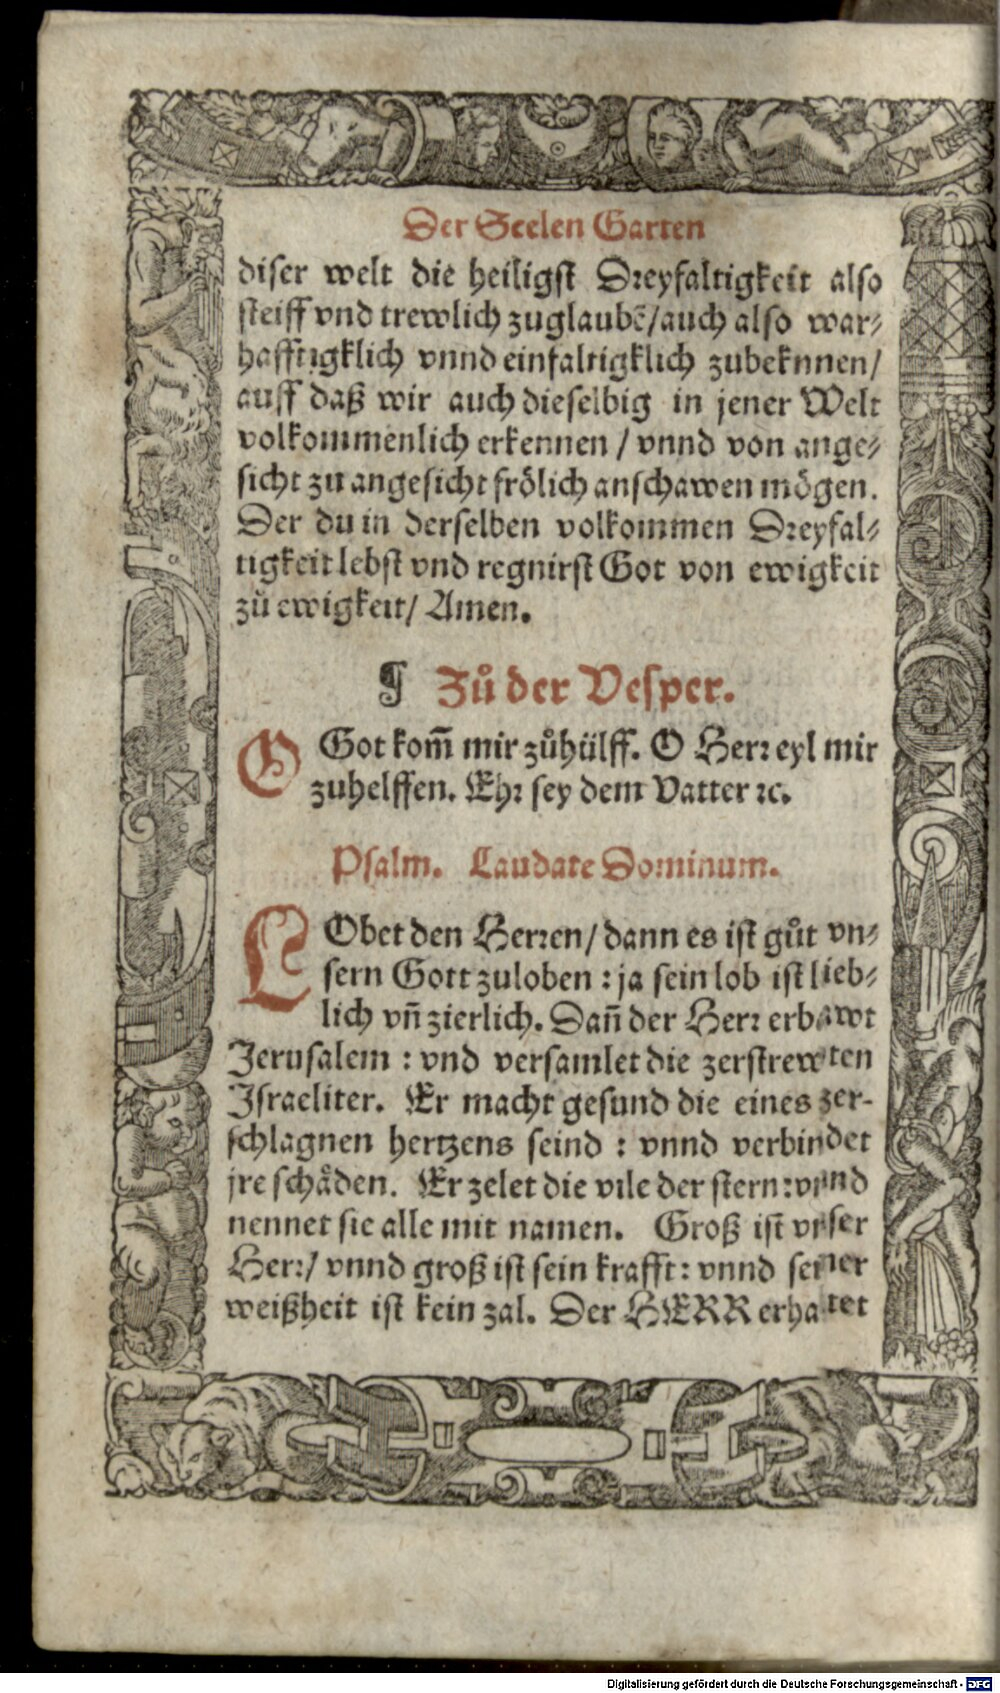 Der Seelen Garten
diser welt die heiligst Dreyfaltigkeit also
steiff vnd trewlich zuglaubē/auch also war⸗
hafftigklich vnnd einfaltigklich zubeknnen/
auff daß wir auch dieselbig in jener Welt
volkommenlich erkennen / vnnd von ange⸗
sicht zu angesicht frölich anschawen mögen.
Der du in derselben volkommen Dreyfal⸗
tigkeit lebst vnd regnirst Got von ewigkeit
zů ewigkeit/ Amen.
¶ Zů der Vesper.
O Got kom̄ mir zůhülff. O Herr eyl mir
zuhelffen. Ehr sey dem Vatter ꝛc.
Psalm. Laudate Dominum.
LObet den Herren/ dann es ist gůt vn⸗
sern Gott zuloben : ja sein lob ist lieb⸗
lich vn̄ zierlich. Dan̄ der Herr erbawt
Jerusalem : vnd versamlet die zerstrewten
Israeliter. Er macht gesund die eines zer-
schlagnen hertzens seind : vnnd verbindet
jre schåden. Er zelet die vile der stern: vnnd
nennet sie alle mit namen. Groß ist vnser
Herr/ vnnd groß ist sein krafft: vnnd seiner
weißheit ist kein zal. Der HERR erhaltet
Digitalisierung gefördert durch die Deutsche Forschungsgemeinschaft - DFG